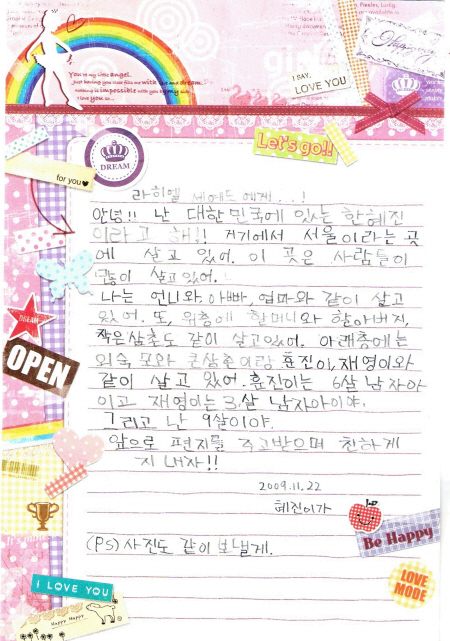 You're my little angel.
just having you close fills me with love and dream.
nothing is impossible with you by my side.
I love you so...
I SAY,
LOVE YOU
Let's go!!
DREAM
for you
라히엘 세예드 에게..!
안녕!! 난 대한민국에 있는 한혜진
이라고 해!! 거기에서 서울이라는 곳
에 살고 있어. 이 곳은 사람들이
많이 살고 있어.
나는 언니와, 아빠, 엄마와 같이 살고
있어. 또, 위층에 할머니와 할아버지,
작은삼촌도 같이 살고있어. 아래층에는
외숙모와 큰삼촌이랑 훈진이, 재영이와
같이 살고 있어. 훈진이는 6살 남자아
이고 재영이는 3살 남자아이야.
그리고 난 9살이야.
앞으로 편지를 주고받으며 친하게
지내자!!
2009.11.22
혜진이가
(PS) 사진도 같이 보낼게.
DREAM
OPEN
Be Happy
I LOVE YOU
LOVE
MODE
Happy Happy